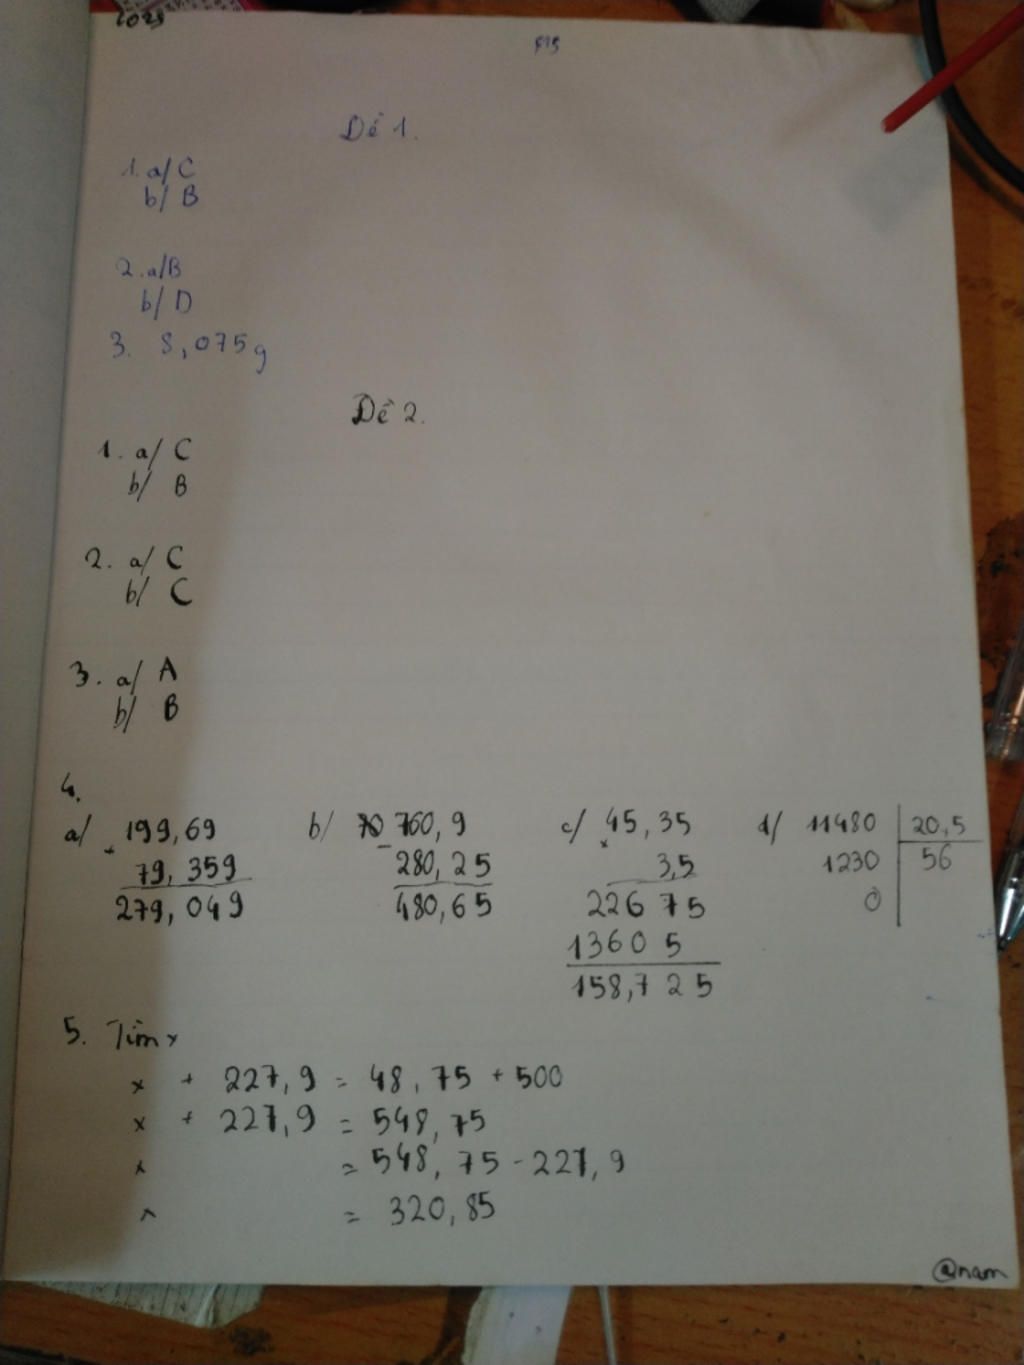 Dề 1.
1. a/ C
b/ B
2. a/B
b/ D
3. 8,075g
Dề 2.
1. a/ C
b/ B
2. a/ C
b/ C
3. a/ A
b/ B
4.
a/ 199,69 b/ 760,9 c/ 45,35 d/ 11480 20,5
+ 79,359 - 280,25 x 3,5 1230 56
279,049 480,65 22675 0
13605
158,725
5. Tìm x
x + 227,9 = 48,75 + 500
x + 227,9 = 548,75
x = 548,75 - 227,9
x = 320,85
@nam